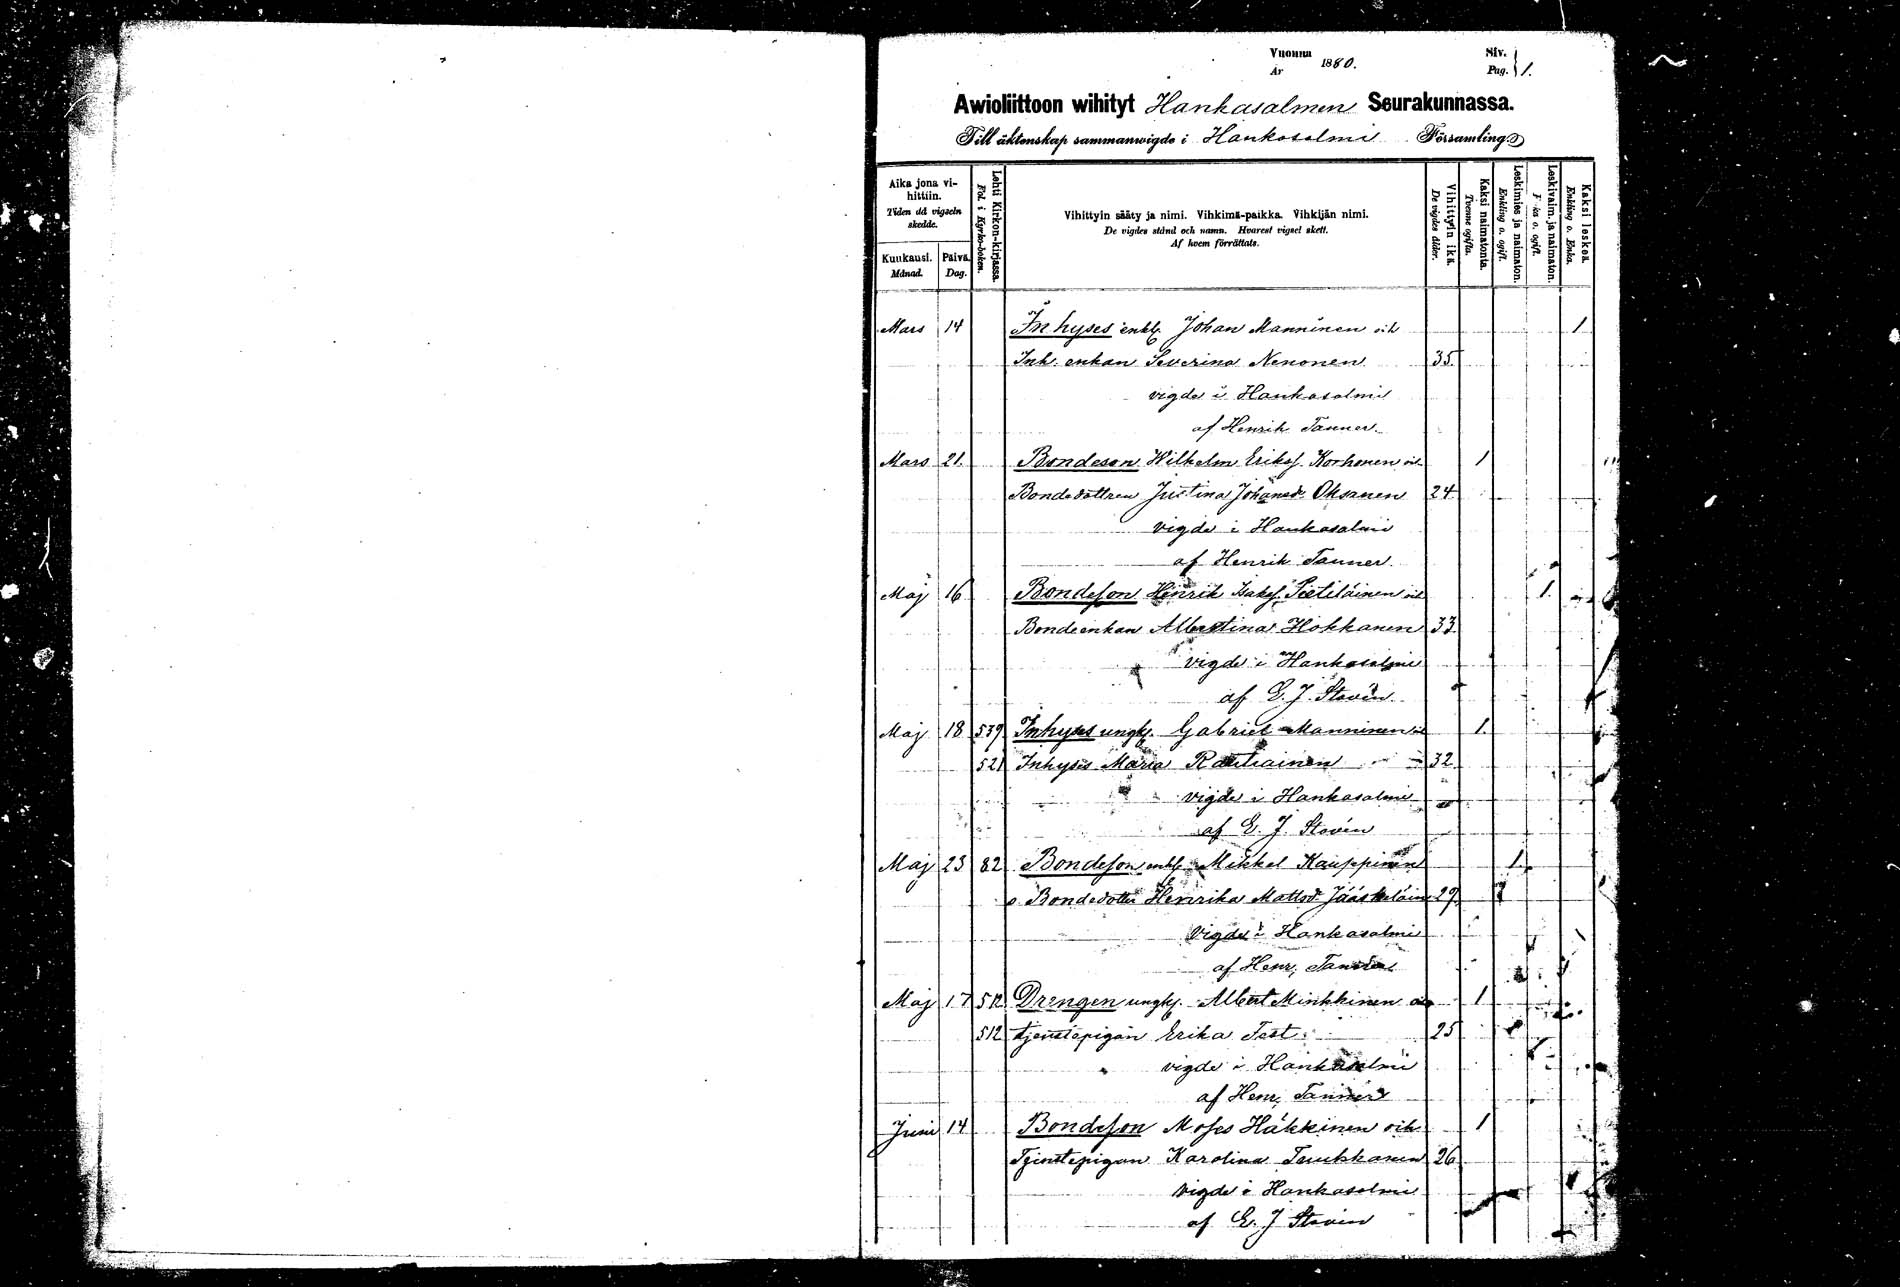 Vuonna 1880. Siv. 1.
År Pag.
Awioliittoon wihityt Hankasalmen Seurakunnassa.
Till äktenskap sammanwigde i Hankasalmi Församling
Aika jona vi-
hittiin.
Tiden då vigseln
skedde.
Kuukausi.
Månad.
Päivä.
Dag.
Lehti Kirkon-kirjassa.
Fol. i Kyrko-boken.
Vihittyin sääty ja nimi. Vihkimä-paikka. Vihkijän nimi.
De vigdes stånd och namn. Hvarest vigsel skett.
Af hvem förrättats.
Vihittyin ikä.
De vigdes ålder.
Kaksi naimatonta.
Tvenne ogifta.
Leskimies ja naimaton.
Enkling o. ogift.
Leskivaim. ja naimaton.
Enka o. ogift.
Kaksi leskeä.
Enkling o. Enka.
Mars 14 Inhyses enkl. Johan Manninen och 1
Inh. enkan Severina Nenonen 35.
vigde i Hankasalmi
af Henrik Tanner.
Mars 21. Bondeson Wilhelm Eriksf. Korhonen och 1
Bondedottren Justina Johansd. Oksanen 24
vigde i Hankasalmi
af Henrik Tanner
Maj 16 Bondeson Henrik Isaksf. Pietiläinen och 1.
Bondeenkan Albertina Hokkanen 33
vigde i Hankasalmi
af E. J. Stovén
Maj 18 539 Inhyses ungk. Gabriel Manninen och 1.
521 Inhyses Maria Rautiainen 32
vigde i Hankasalmi
af E. J. Stovén
Maj 23 82 Bondeson enkl. Mikkel Kauppinen 1
o Bondedotter Henrika Mattsd. Jääskeläinen 29.
vigde i Hankasalmi
af Henr, Tanner
Maj 17 512 Drengen ungk. Albert Minkkinen och 1
512 tjenstepigan Erika Test 25
vigde i Hankasalmi
af Henr, Tanner
Juni 14 Bondeson Moses Häkkinen och 1
Tjenstepigan Karolina 26
vigde i Hankasalmi
af E. J Stovén